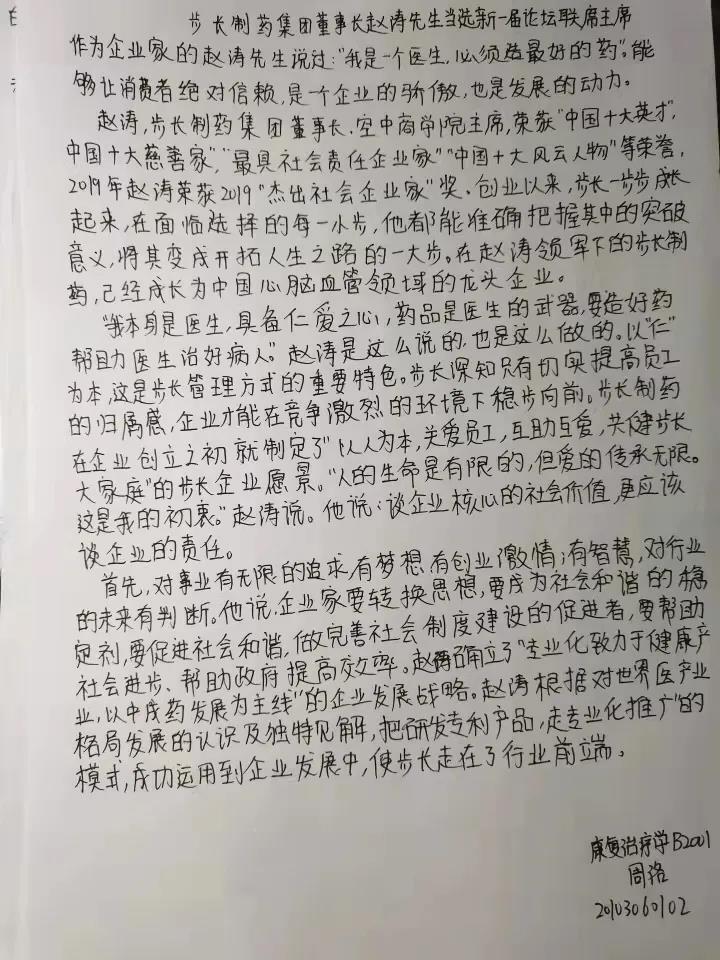 步长制药集团董事长赵涛先生当选新一届论坛联席主席
作为企业家的赵涛先生说过:“我是一个医生,必须造最好的药”。能
够让消费者绝对信赖,是一个企业的骄傲,也是发展的动力。
赵涛,步长制药集团董事长、空中商学院主席,荣获“中国十大英才”,
中国十大慈善家”,“最具社会责任企业家”“中国十大风云人物”等荣誉,
2019年赵涛荣获2019“杰出社会企业家”奖。创业以来,步长一步步成长
起来,在面临选择的每一小步,他都能准确把握其中的突破
意义,将其变成开拓人生之路的一大步。在赵涛领军下的步长制
药,已经成长为中国心脑血管领域的龙头企业。
“我本身是医生,具备仁爱之心,药品是医生的武器,要造好药
帮助医生治好病人。”赵涛是这么说的,也是这么做的。以“仁”
为本,这是步长管理方式的重要特色。步长深知只有切实提高员工
的归属感,企业才能在竞争激烈的环境下稳步向前。步长制药
在企业创立之初就制定了“以人为本,关爱员工,互助互爱,共健步长
大家庭”的步长企业愿景。“人的生命是有限的,但爱的传承无限。
这是我的初衷。”赵涛说。他说:谈企业核心的社会价值,更应该
谈企业的责任。
首先,对事业有无限的追求,有梦想,有创业激情;有智慧,对行业
的未来有判断。他说,企业家要转换思想,要成为社会和谐的稳
定剂,要促进社会和谐,做完善社会制度建设的促进者,要帮助
社会进步、帮助政府提高效率。赵涛确立了“专业化致力于健康产
业,以中成药发展为主线”的企业发展战略。赵涛根据对世界医产业
格局发展的认识及独特见解,把“研发专利产品,走专业化推广”的
模式,成功运用到企业发展中,使步长走在了行业前端。
康复治疗学B2001
周洛
20103060102